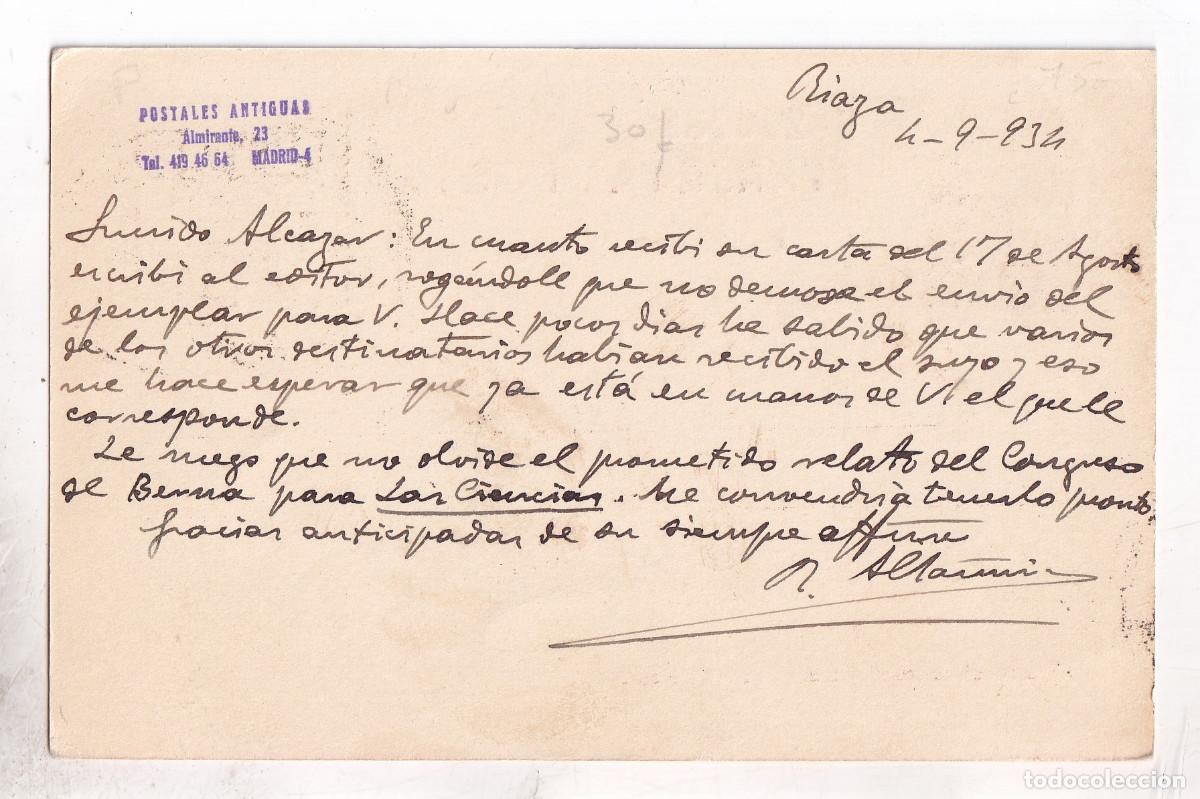 Riaza
4-9-934
POSTALES ANTIGUAS
Almirante, 23
Tel. 419 46 64 MADRID-4
30f
Querido Alcazar: En cuanto recibi su carta del 17 de Agosto
escribi al editor, rogándole que no demorase el envio del
ejemplar para V. Hace pocos dias he sabido que varios
de los otros destinatarios habian recibido el suyo y eso
me hace esperar que ya está en manos de V. el que le
corresponde.
Le ruego que no olvide el prometido relato del Congreso
de Berna para Las Ciencias. Me convendria tenerlo pronto.
Gracias anticipadas de su siempre affmo
R. Altamira
todocoleccion